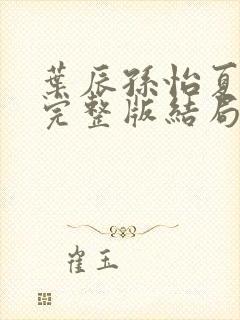 葉辰孫怡夏
完整版結局
崔玉